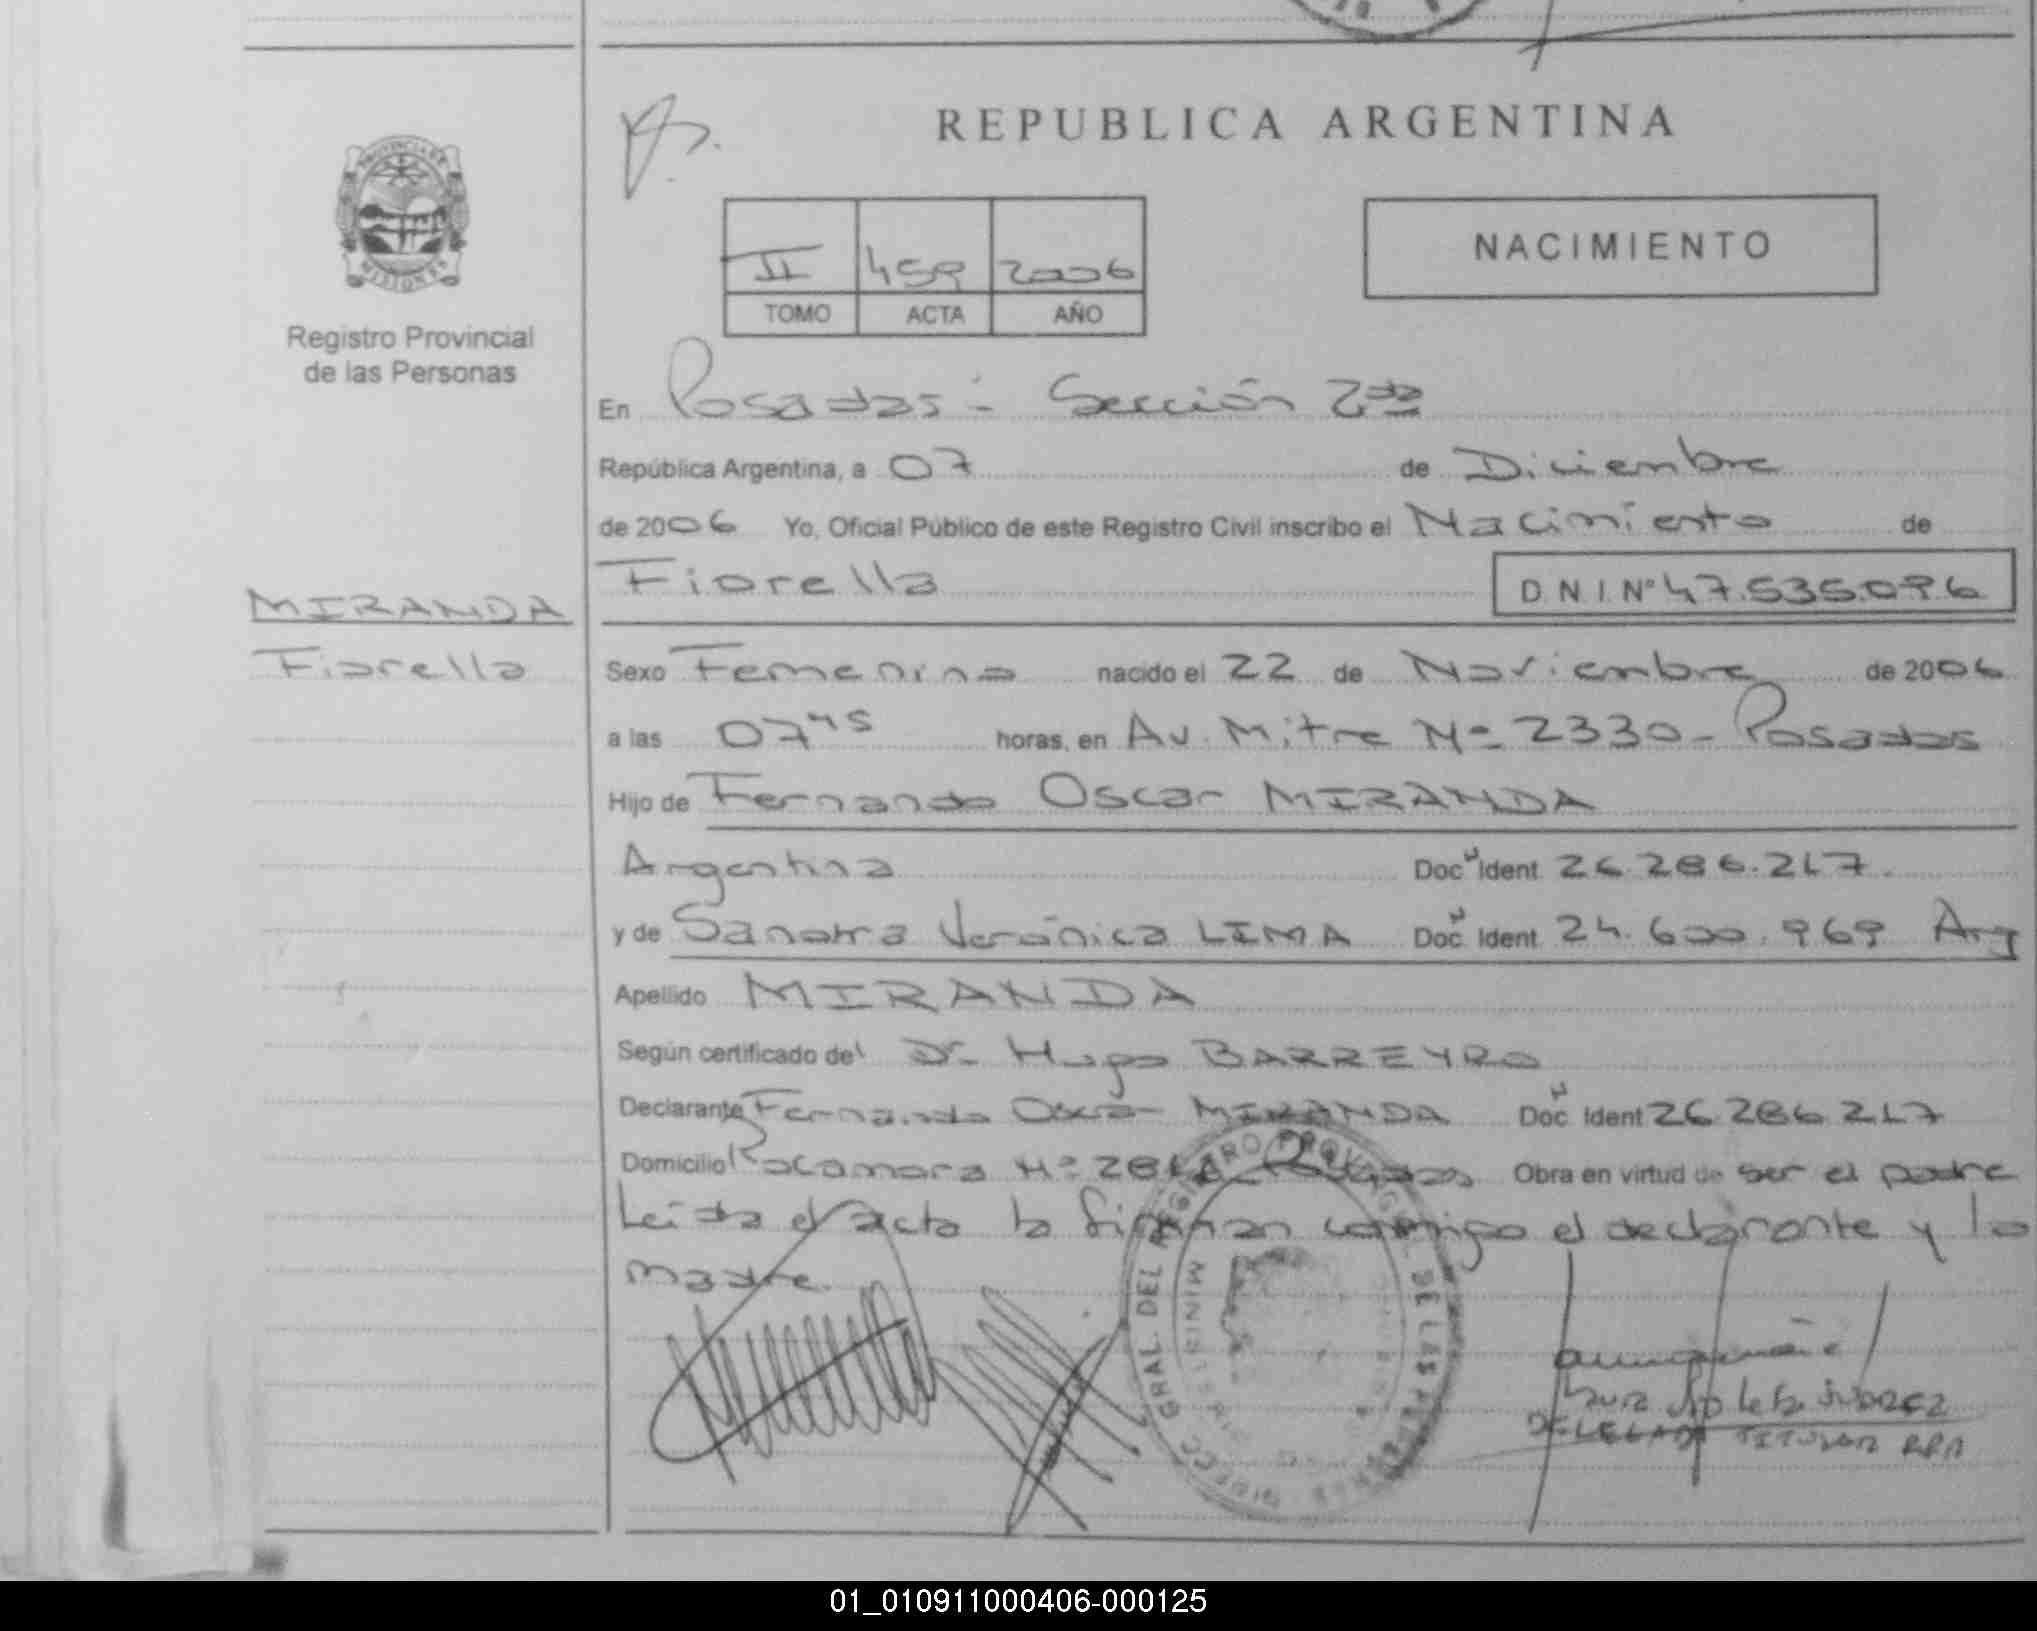 REPUBLICA ARGENTINA
PROVINCIA DE
MISIONES
Registro Provincial
de las Personas
II 459 2006
TOMO ACTA AÑO
NACIMIENTO
En Posadas - Sección 2da
República Argentina, a 07 de Diciembre
de 2006 Yo, Oficial Público de este Registro Civil inscribo el Nacimiento de
Fiorella D.N.I.Nº 47.535.096
MIRANDA
Fiorella
Sexo Femenino nacido el 22 de Noviembre de 2006
a las 07 45 horas, en Av. Mitre Nº 2330 - Posadas
Hijo de Fernando Oscar MIRANDA
Argentina Doc Ident 26.286.217.
y de Sandra Verónica LIMA Doc Ident 24.600.969 Arg
Apellido MIRANDA
Según certificado del Dr. Hugo BARREYRO
Declarante Fernando Oscar MIRANDA Doc Ident 26.286.217
Domicilio Rocamora Nº Posadas Obra en virtud de ser el padre
Leida el acta la firman conmigo el declarante y la
madre.
DIRECC. GRAL. DEL REGISTRO PROVINCIAL DE LAS PERSONAS
JUAREZ
DELEGADA TITULAR RPP
01_010911000406-000125